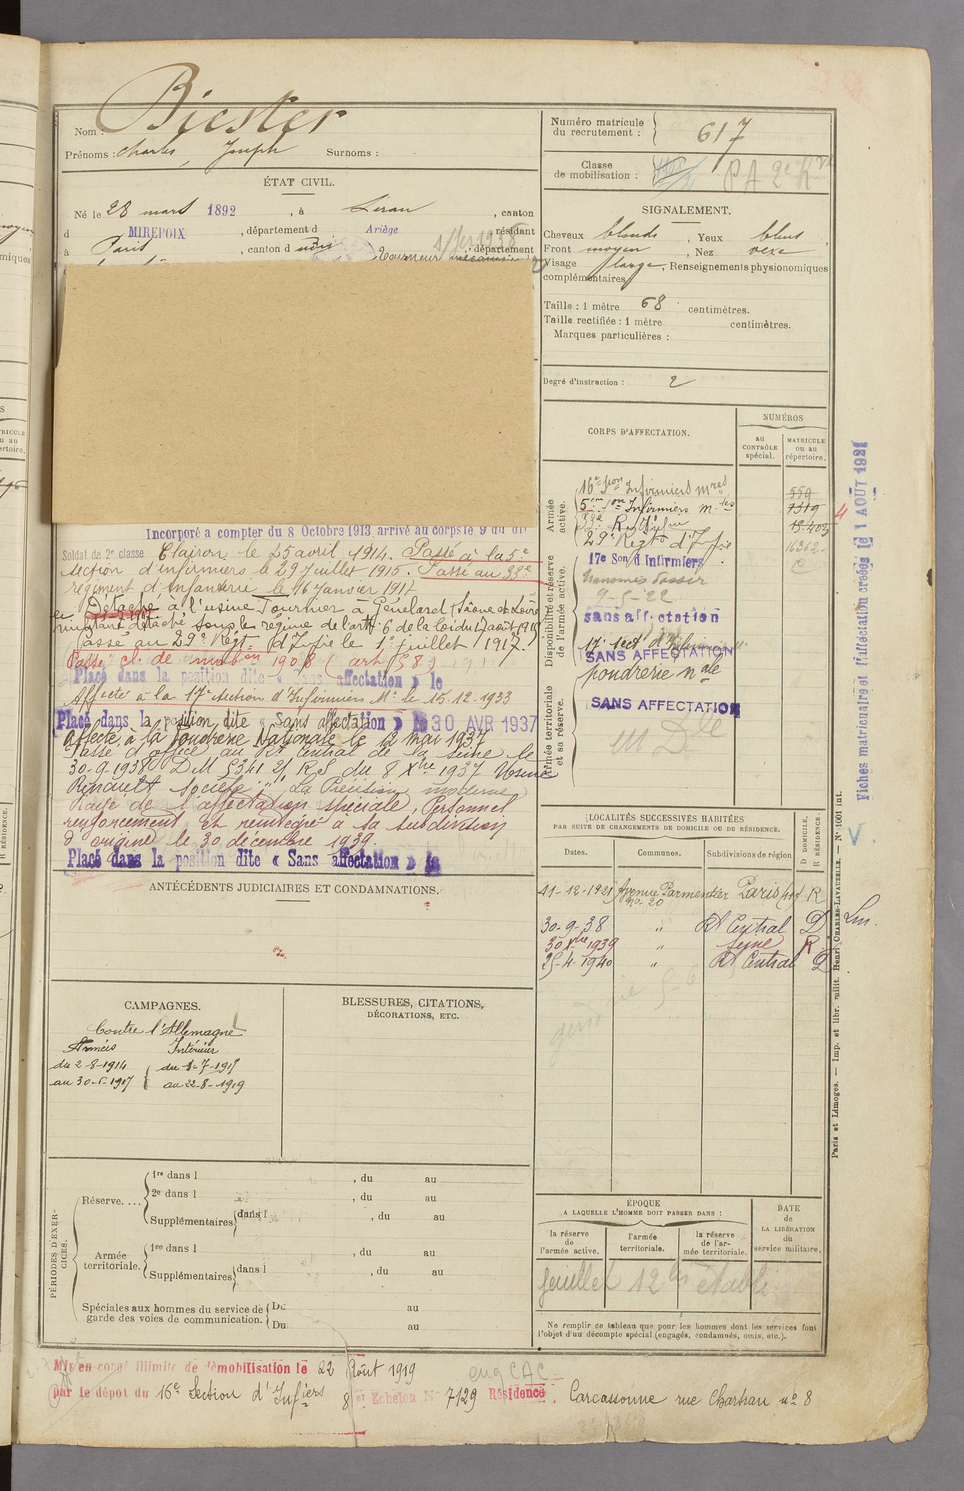 Nom : Biester
Prénoms : Charles, Joseph Surnoms :
ÉTAT CIVIL.
Né le 28 mars 1892, à Leran, canton
d MIREPOIX, département d Ariège, résidant
à Paris, canton d udis, département
tourneur mécanicien
Incorporé à compter du 8 Octobre 1913, arrivé au corps le 9 du dit
Soldat de 2e classe Clairon le 25 avril 1914. Passé à la 5e
section d'infirmiers le 29 juillet 1915. Passé au 33e
régiment d'Infanterie le 16 Janvier 1917
Détaché à l'usine Tournier à Génelard (Saône et Loire)
maintenu détaché sous le régime de l'art 6 de la loi du 17 août 1915
Passé au 29e Régt d'Infie le 1er juillet 1917.
Passé cl. de mobon 1908 (art 58)
Placé dans la position dite « Sans affectation » le
Affecté à la 17e section d'Infirmiers Mres le 15.12.1933
Placé dans la position dite « Sans affectation » le 30 AVR 1937
Affecté à la Poudrerie Nationale le 12 mai 1937
Passé d'office au Rt Central de la Seine le
30-9-1938 D.M 5341 2/ R.S du 8 Xbre 1937 Usine
Renault Société "La Précision moderne"
Rayé de l'affectation spéciale, Personnel
renforcement et réintégré à sa subdivision
d'origine le 30 décembre 1939.
Placé dans la position dite « Sans affectation » le
ANTÉCÉDENTS JUDICIAIRES ET CONDAMNATIONS.
CAMPAGNES.
Contre l'Allemagne
Armées Intérieur
du 2-8-1914 du 1-7-1917
au 30-6-1917 au 22-8-1919
BLESSURES, CITATIONS,
DÉCORATIONS, ETC.
PÉRIODES D'EXERCICES.
Réserve....
1re dans l , du au
2e dans l , du au
Supplémentaires dans l , du au
Armée territoriale.
1re dans l , du au
Supplémentaires dans l , du au
Spéciales aux hommes du service de garde des voies de communication.
Du au
Du au
Numéro matricule du recrutement : 617
Classe de mobilisation : PA 2e Rve
SIGNALEMENT.
Cheveux blonds, Yeux bleus
Front moyen, Nez vexe
Visage large, Renseignements physionomiques
complémentaires
Taille : 1 mètre 68 centimètres.
Taille rectifiée : 1 mètre centimètres.
Marques particulières :
Degré d'instruction : 2
CORPS D'AFFECTATION.
NUMÉROS
AU CONTRÔLE spécial.
MATRICULE ou au répertoire.
Armée active.
16e Son Infirmiers mres 559
5eme Son Infirmiers mres 1319
33e Regt d'Infie 13403
29e Regt d'Infie 16362
C
Disponibilité et réserve de l'armée active.
17e Son d'Infirmiers
9-5-22
sans affectation
17e Sect. d'Infirmiers
SANS AFFECTATION
poudrerie nale
Armée territoriale et sa réserve.
SANS AFFECTATION
M Dle
LOCALITÉS SUCCESSIVES HABITÉES
PAR SUITE DE CHANGEMENTS DE DOMICILE OU DE RÉSIDENCE.
Dates. Communes. Subdivisions de région D DOMICILE. R RÉSIDENCE.
11-12-1921 Avenue Parmentier no 20 Paris R
30-9-38 " Rt Central D
30 Xbre 1939 " Seine R
25-4-1940 " Rt Central D
ÉPOQUE
A LAQUELLE L'HOMME DOIT PASSER DANS :
la réserve de l'armée active.
l'armée territoriale.
la réserve de l'armée territoriale.
DATE de LA LIBÉRATION du service militaire.
feuillet 12 bis établi
Ne remplir ce tableau que pour les hommes dont les services font
l'objet d'un décompte spécial (engagés, condamnés, omis, etc.).
Fiches matricule et d'affectation créées le 1 AOUT 1921
Paris et Limoges. — Imp. et libr. milit. Henri CHARLES-LAVAUZELLE. — No 1001 int.
Mis en congé illimité de démobilisation le 22 Août 1919
par le dépôt du 16e Section d'Infiers 8e Echelon No 7129 Résidence Carcassonne rue Chartran no 8